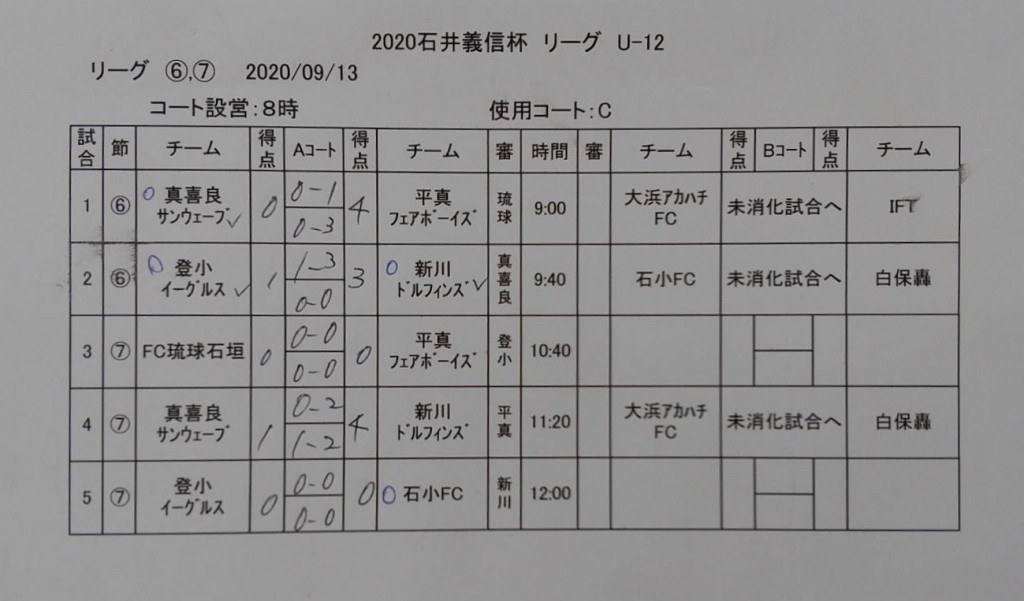 2020石井義信杯 リーグ U-12
リーグ ⑥,⑦ 2020/09/13
コート設営:8時 使用コート:C
試合 節 チーム 得点 Aコート 得点 チーム 審 時間 審 チーム 得点 Bコート 得点 チーム
1 ⑥ 真喜良サンウェーブ 0 0-1 0-3 4 平真フェアボーイズ 琉球 9:00 大浜アカハチFC 未消化試合へ IFT
2 ⑥ 登小イーグルス 1 1-3 0-0 3 新川ドルフィンズ 真喜良 9:40 石小FC 未消化試合へ 白保轟
3 ⑦ FC琉球石垣 0 0-0 0-0 0 平真フェアボーイズ 登小 10:40
4 ⑦ 真喜良サンウェーブ 1 0-2 1-2 4 新川ドルフィンズ 平真 11:20 大浜アカハチFC 未消化試合へ 白保轟
5 ⑦ 登小イーグルス 0 0-0 0-0 0 石小FC 新川 12:00